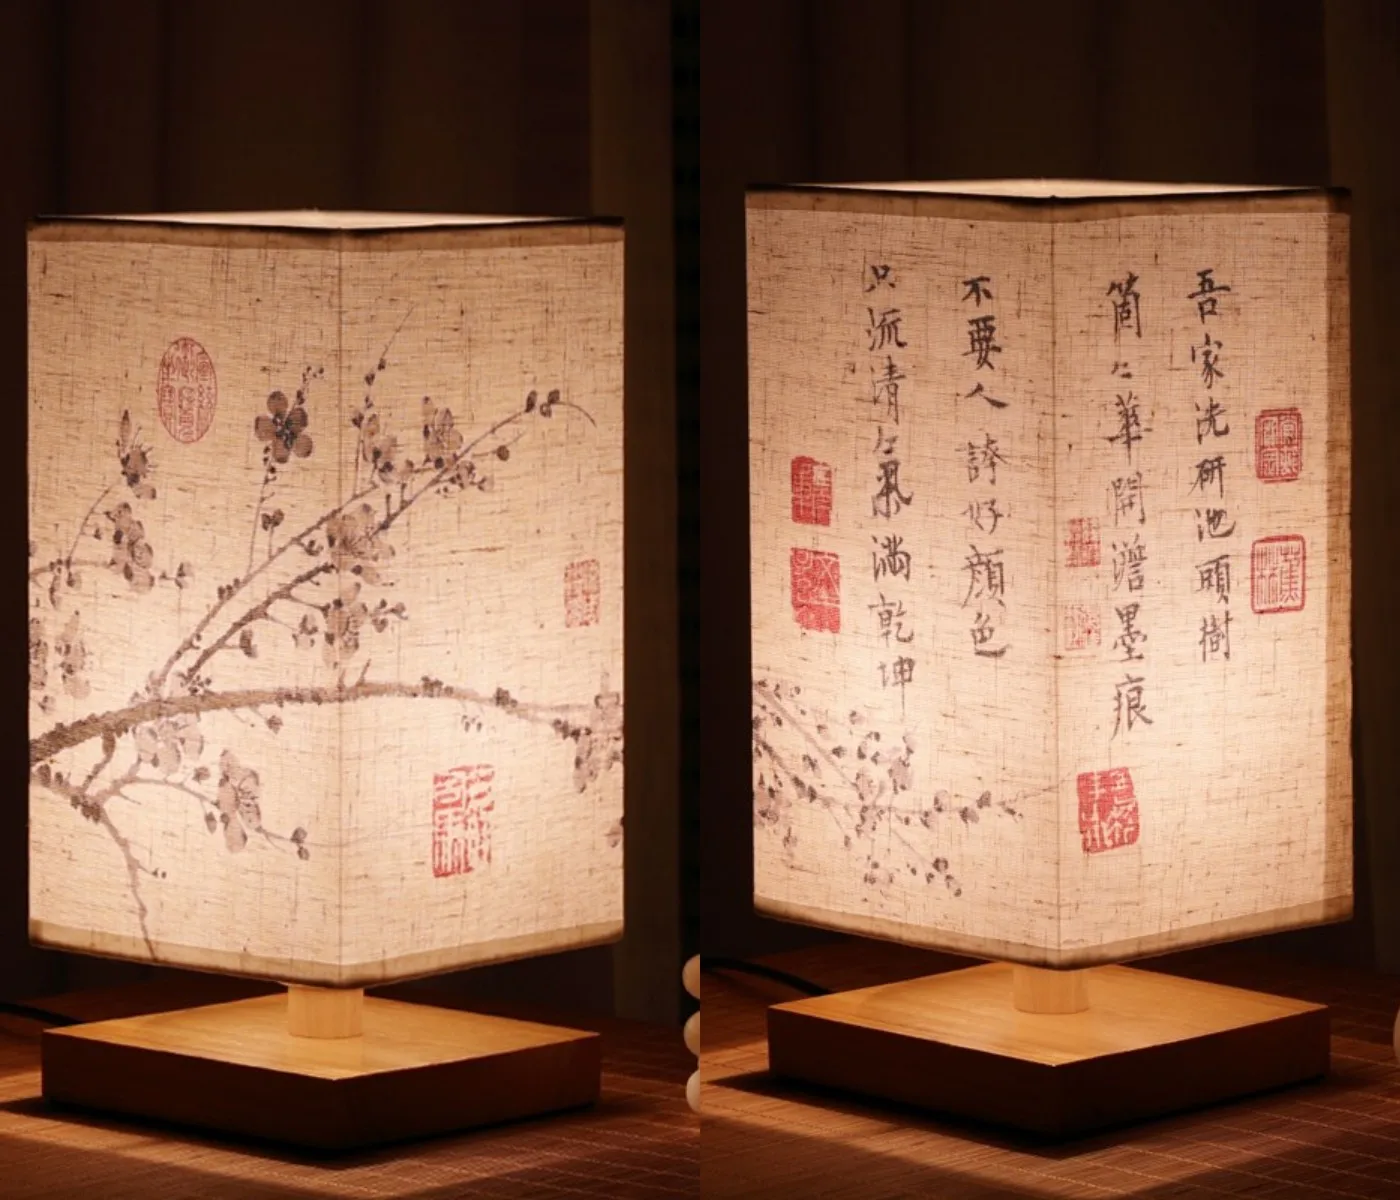 吾家洗研池頭樹
箇〻華開澹墨痕
不要人誇好顏色
只流清氣滿乾坤
蕉林